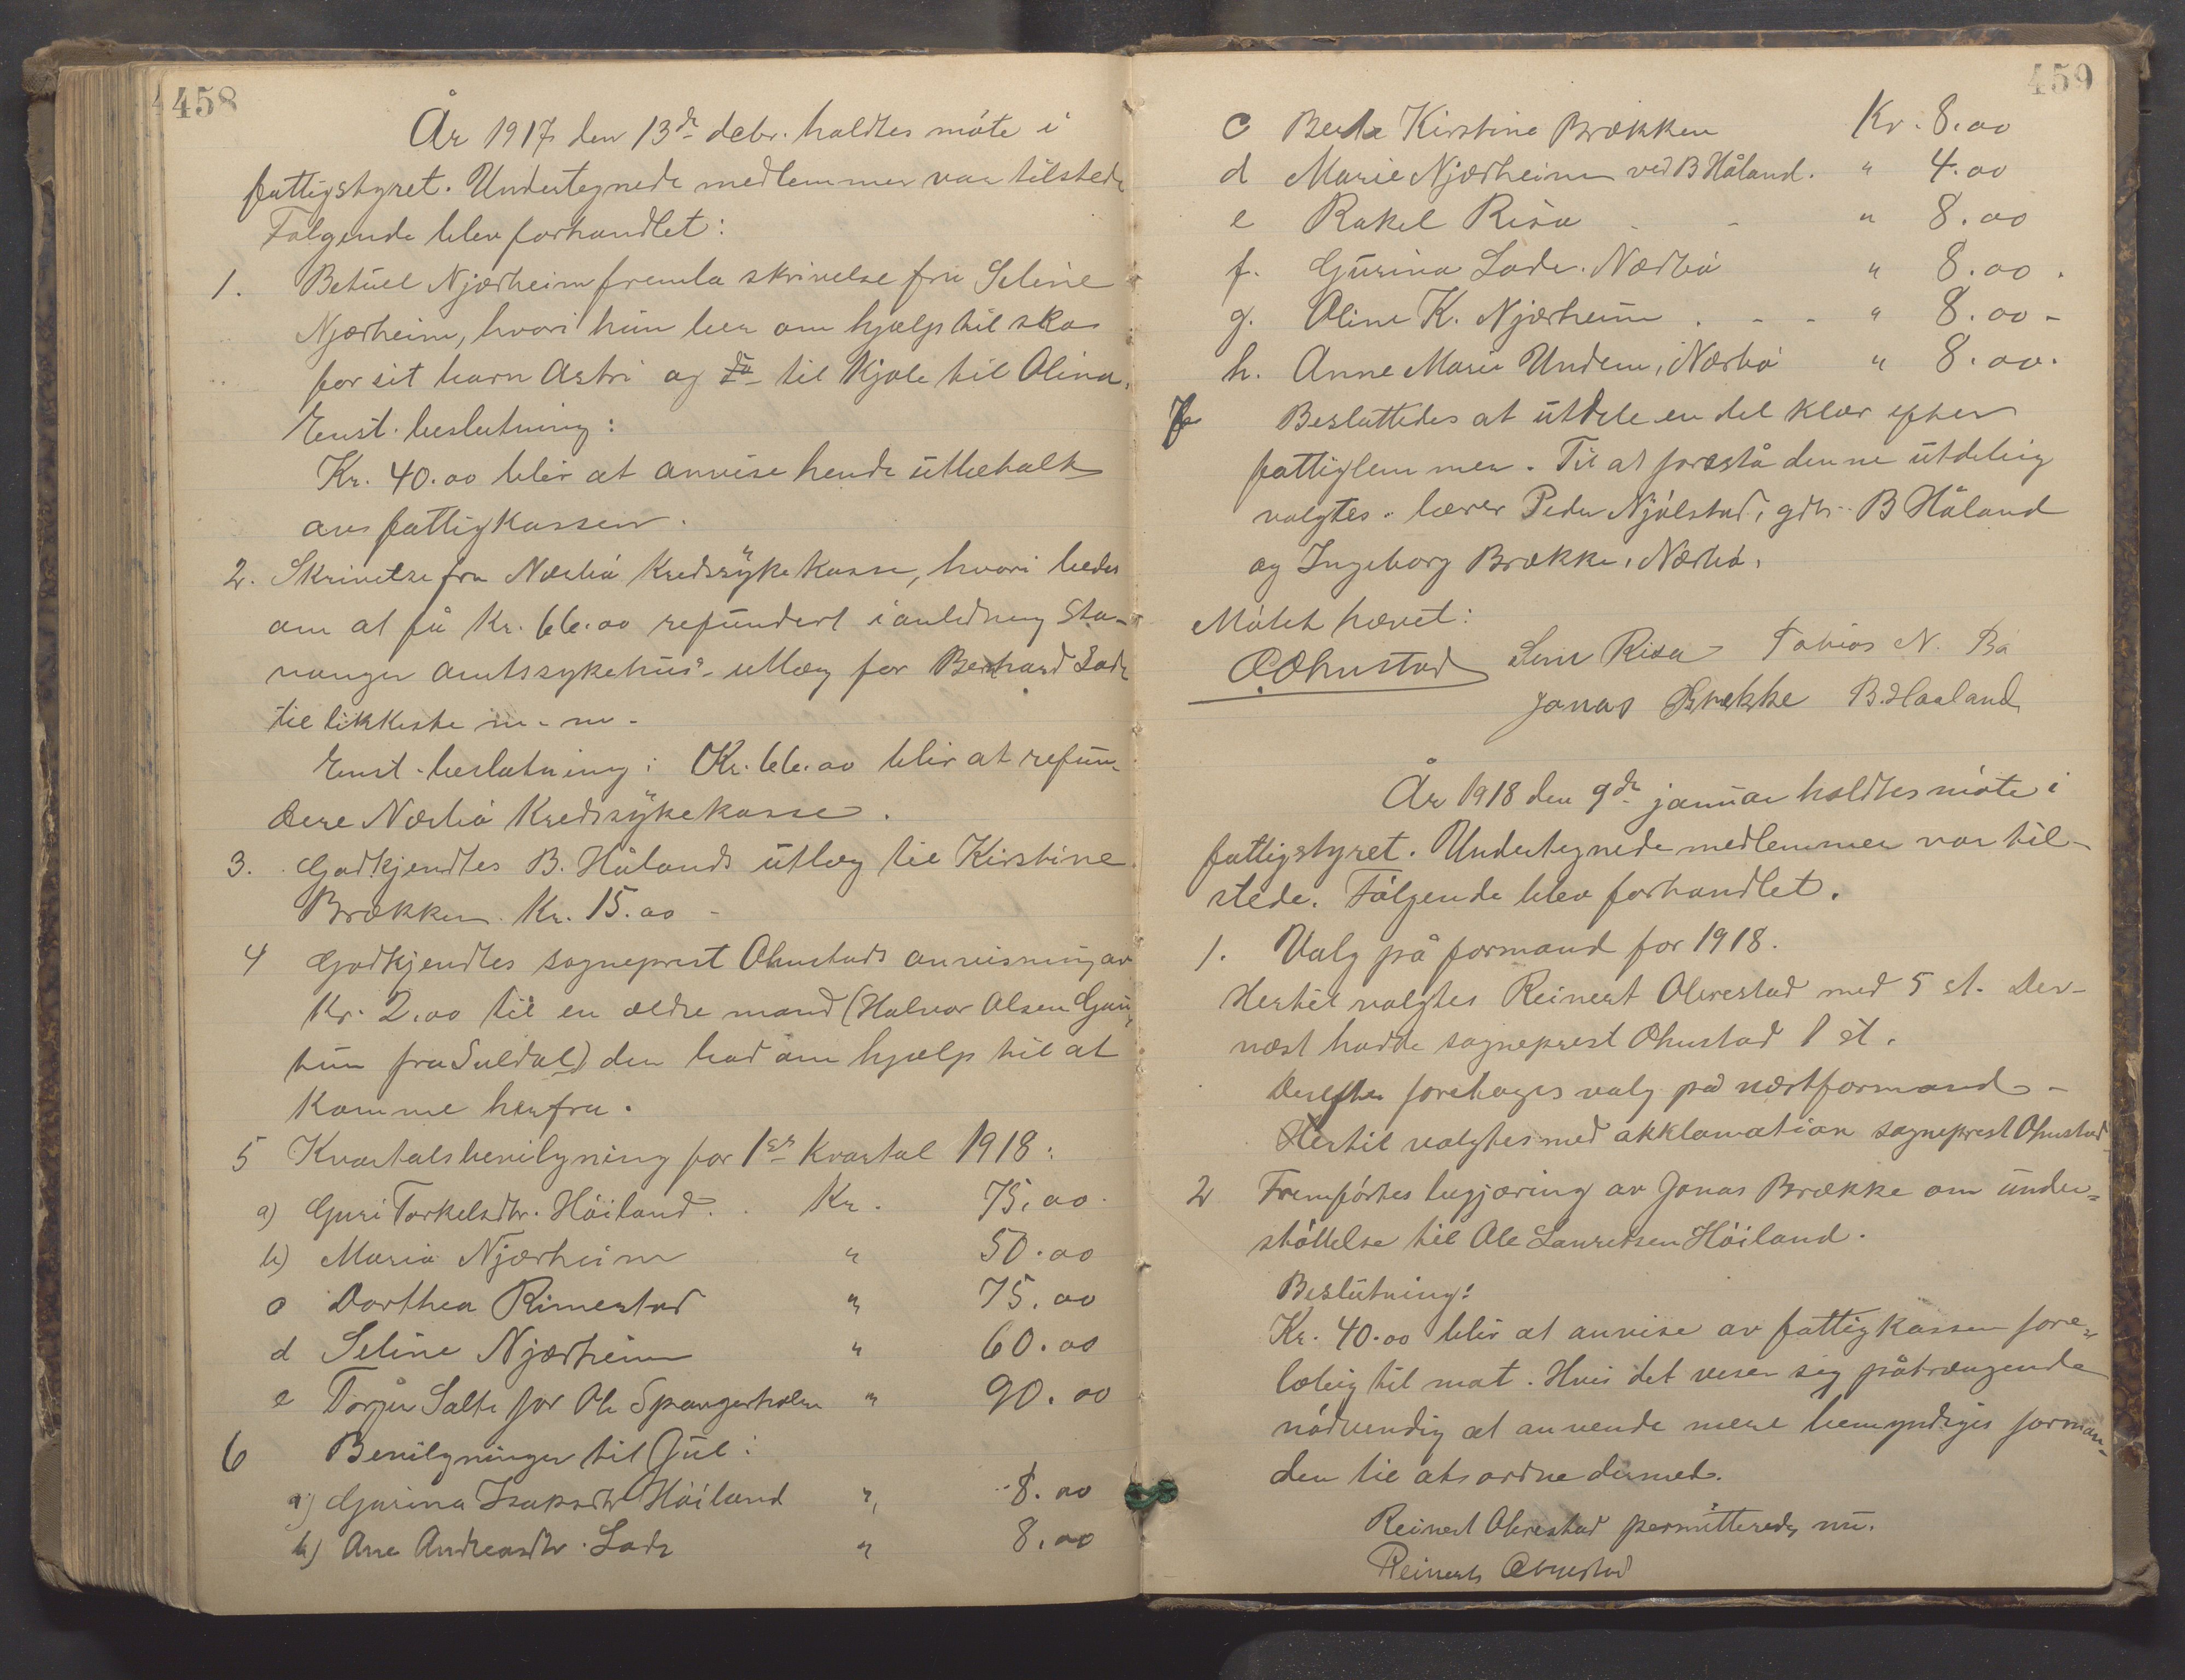 458
År 1917 den 13de debr. holdtes møte i
fattigstyret. Undertegnede medlemmer var tilstede
Følgende blev forhandlet:
1. Betuel Njærheim fremla skrivelse fra Seline
Njærheim, hvori hun ber om hjælp til sko
for sit barn Astri og do til Kjole til Olina.
Enst. beslutning:
Kr. 40.00 blir at anvise hende utbetalt
av fattigkassen.
2. Skrivelse fra Nærbø Kredssykekasse, hvori bedes
om at få Kr. 66.00 refundert i anledning Sta-
vanger amtssykehus's utlæg for Berhard Lode
til likkiste m. m.
Enst. beslutning: Kr. 66.00 blir at refun-
dere Nærbø Kredssykekasse.
3. Godkjendtes B. Hålands utlæg til Kirstine
Brækken Kr. 15.00
4 Godkjendtes sogneprest Ohnstads anvisning av
Kr. 2.00 til en ældre mand (Halvor Olsen
fra Suldal) den bad om hjælp til at
komme herfra.
5 Kvartalsbevilgning for 1ste Kvartal 1918:
a) Guri Torkelsdtr. Høiland. . Kr. 75.00
b) Maria Njærheim " 50.00
c Dorthea Rimestad " 75.00
d Seline Njærheim " 60.00
e Torger Salte for Ole Spangerholm " 90.00
6 Bevilgninger til Jul:
a) Gurina Isaksdtr Høiland " 8.00
b) Ane Andreasdtr. Lode " 8.00
459
c Berta Kirstine Brækken Kr. 8.00
d Marie Njærheim ved B Håland. " 4.00
e Rakel Risa - - " 8.00
f. Gurina Lode. Nærbø " 8.00.
g. Oline K. Njærheim . - - " 8.00-
h. Anne Marie Undem, Nærbø " 8.00.
7 Besluttedes at utdele en del klær efter
fattiglemmer. Til at forestå denne utdeling
valgtes lærer Peder Njølstad, gdbr. B Håland
og Ingeborg Brække, Nærbø.
Møtet hævet:
O. Ohnstad Sem Risa Tobias N. Bø
Jonas Brække B. Haaland
År 1918 den 9de januar holdtes møte i
fattigstyret. Undertegnede medlemmer var til-
stede. Følgende blev forhandlet.
1. Valg på formand for 1918.
Hertil valgtes Reinert Obrestad med 5 st. Der-
næst hadde sogneprest Ohnstad 1 st.
Derefter foretoges valg på værtformand-
Hertil valgtes med akklamation sogneprest Ohnstad
2 Fremførtes begjæring av Jonas Brække om under-
støttelse til Ole Lauretsen Høiland.
Beslutning:
Kr. 40.00 blir at anvise av fattigkassen fore-
løbig til mat. Hvis det viser sig påtrængende
nødvendig at anvende mere bemyndiges forman-
den til at ordne dermed.
Reinert Obrestad permitteredes nu.
Reinert Obrestad